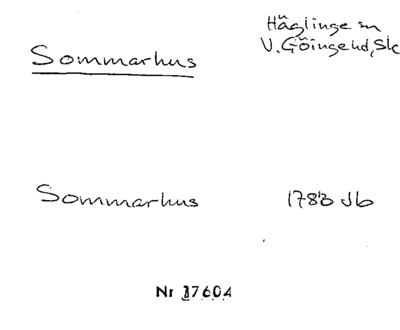 Sommarhus
Häglinge sn
V. Göinge hd, Sk
Sommarhus
1783 Jb
Nr 17604